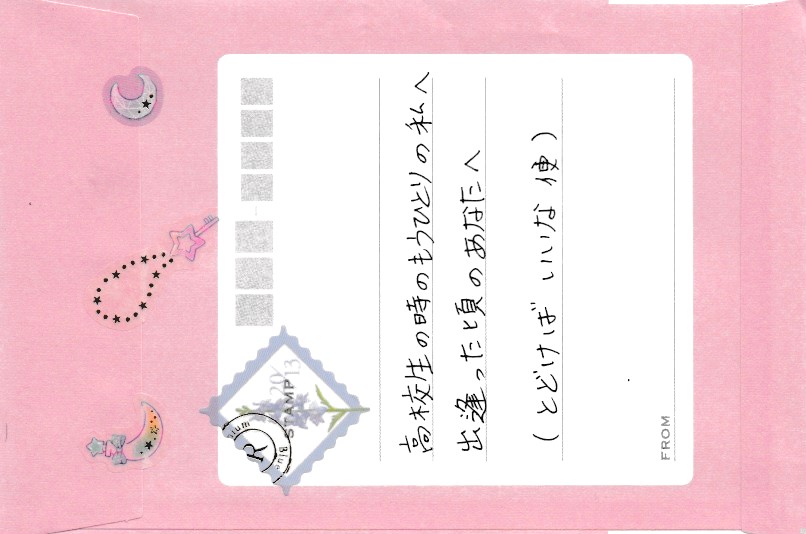 高校生の時のもうひとりの私へ
出逢ったと頃のあなたへ
(とどけば いいな 便)
FROM
20
13
STAMP
R
ium
Blue